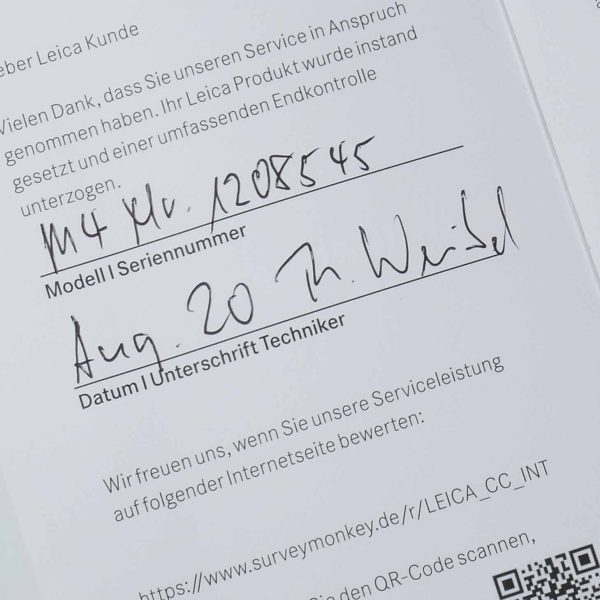 eber Leica Kunde
Vielen Dank, dass Sie unseren Service in Anspruch
genommen haben. Ihr Leica Produkt wurde instand
gesetzt und einer umfassenden Endkontrolle
unterzogen.
M4 Nr. 1208545
Modell I Seriennummer
Aug. 20 Th. Weibel
Datum I Unterschrift Techniker
Wir freuen uns, wenn Sie unsere Serviceleistung
auf folgender Internetseite bewerten:
https://www.surveymonkey.de/r/LEICA_CC_INT
Sie den QR-Code scannen,